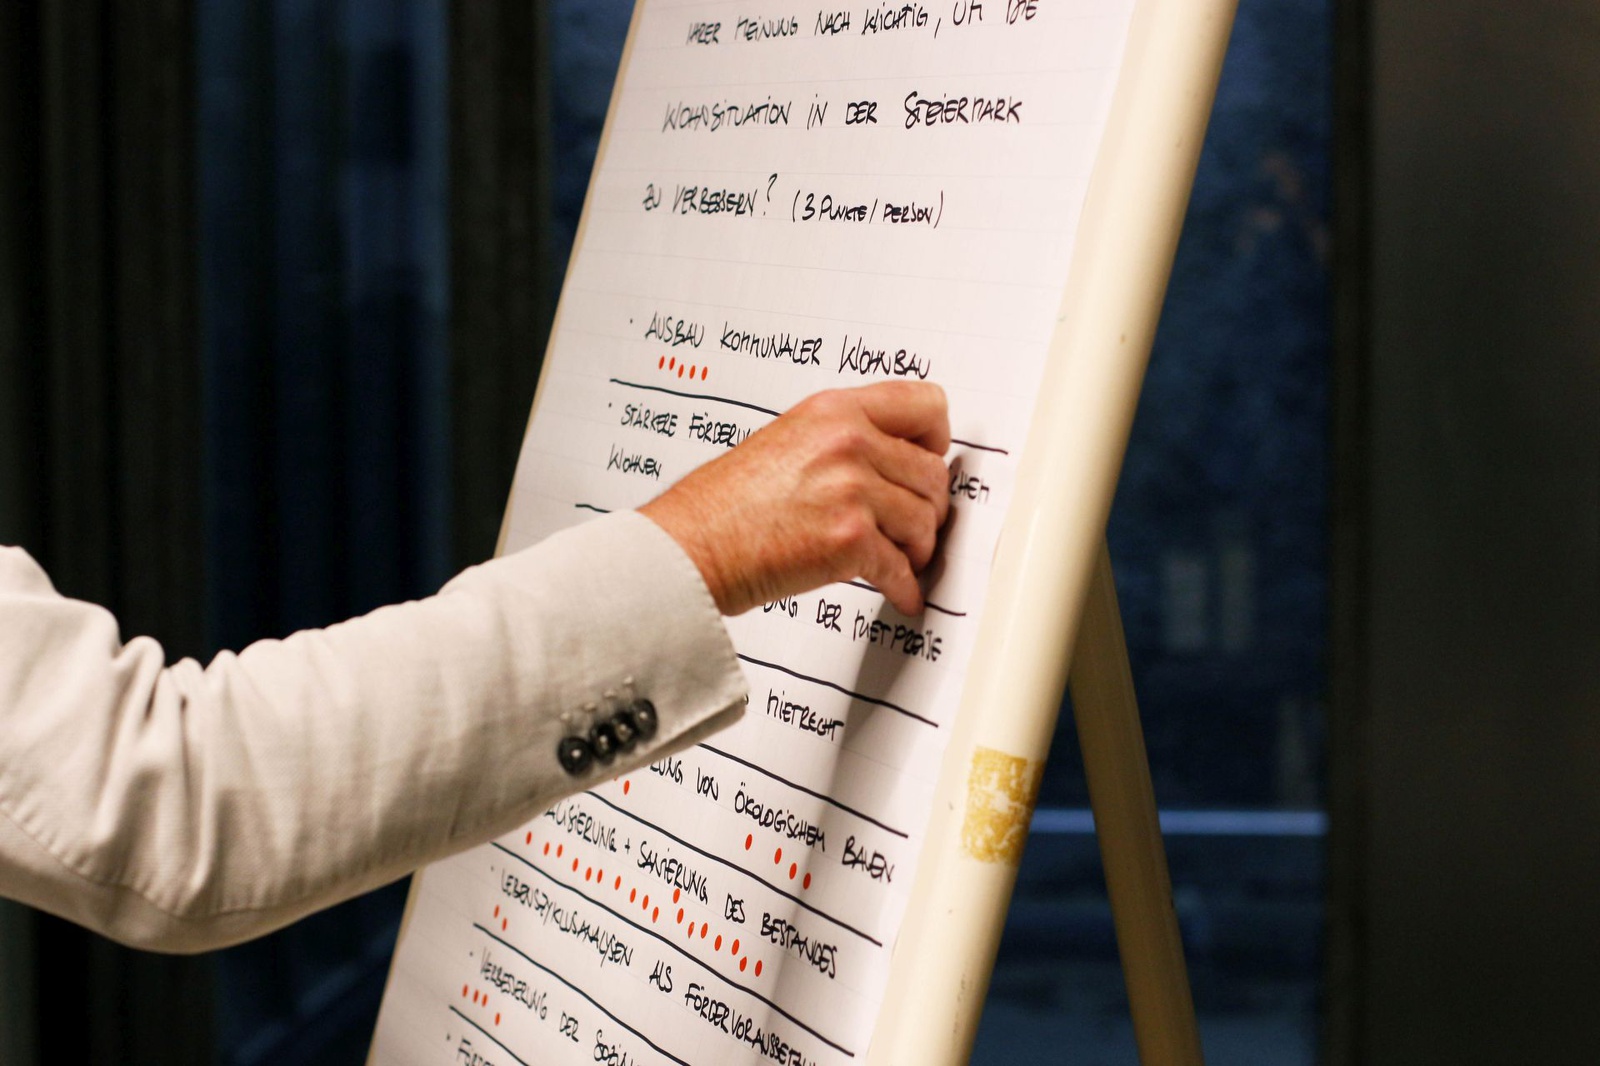 IHRER MEINUNG NACH WICHTIG, UM DIE
WOHNSITUATION IN DER STEIERMARK
ZU VERBESSERN? (3 PUNKTE/PERSON)
· AUSBAU KOMMUNALER WOHNBAU
· STÄRKERE
WOHNEN
DER MIETPREISE
MIETRECHT
VON ÖKOLOGISCHEM BAUEN
+ SANIERUNG DES BESTANDES
· LEBENSZYKLUSANALYSEN ALS
· VERBESSERUNG DER